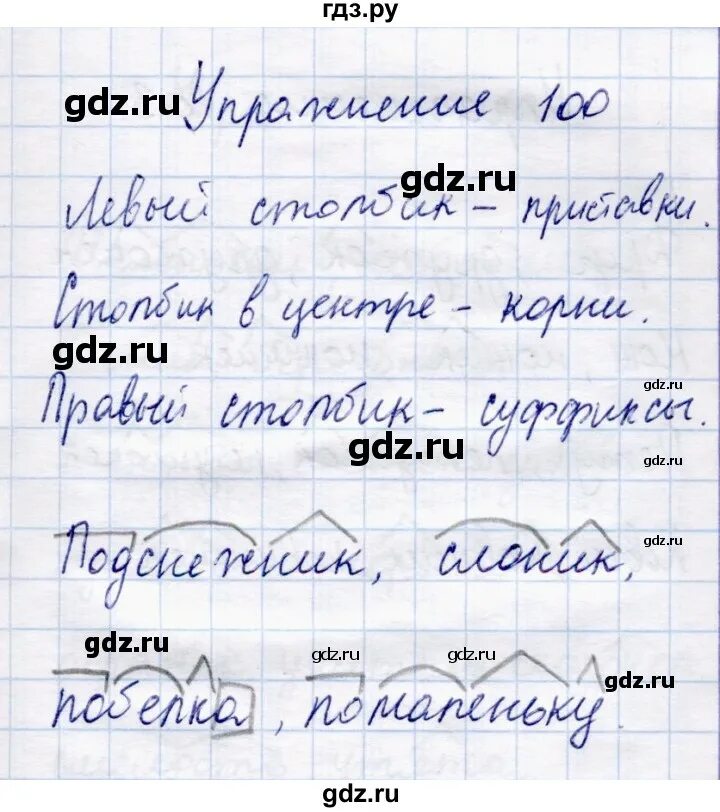 гдз.ру
gdz.ru
Упражнение 100
gdz.ru
Левый столбик – приставки.
Столбик в центре – корни.
gdz.ru
gdz.ru
Правый столбик – суффиксы.
gdz.ru
gdz.ru
gdz.ru
Подснежник, слоник,
gdz.ru
gdz.ru
gdz.ru
gdz.ru
побелка, помаленьку.
gdz.ru